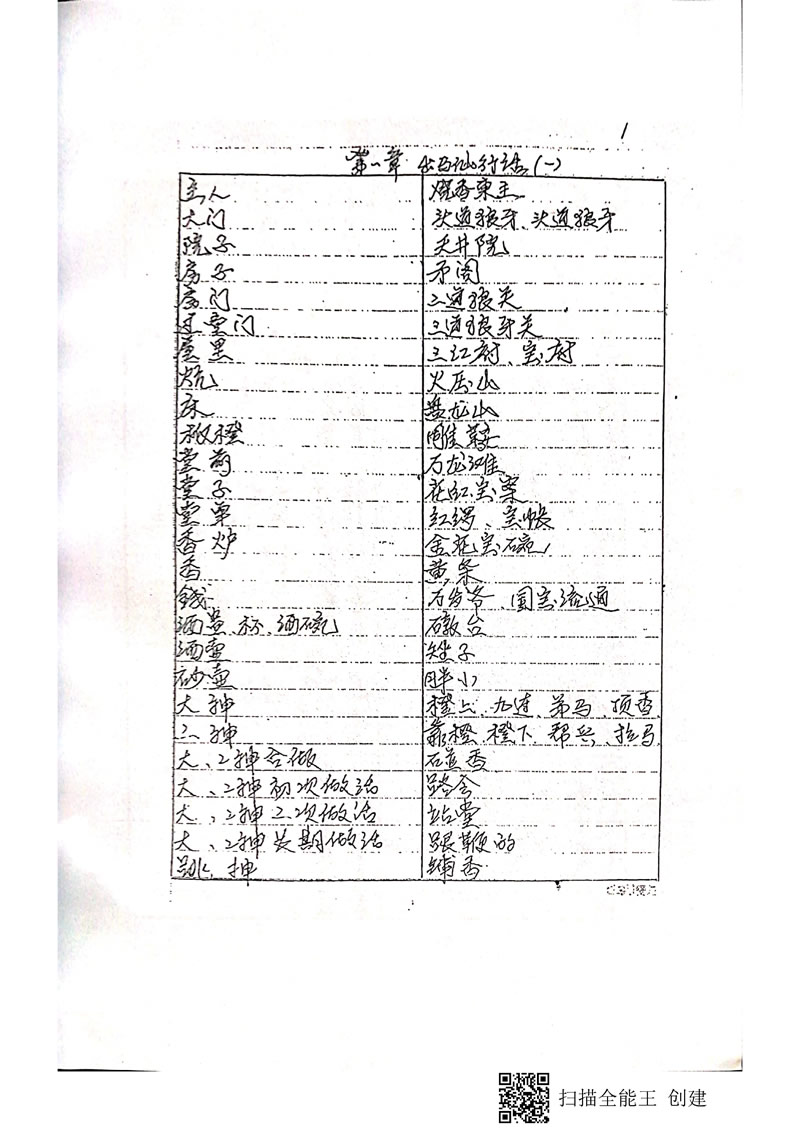 1
第一章 出马仙行话(一)
主人 烧香东主
大门 头道狼牙、头道狼牙
院子 天井院
房子 矛阁
房门 二道狼关
过堂门 三道狼牙关
屋里 三江府、宝府
炕 火层山
床 盘龙山
板橙 雕鞍
堂前 万龙滩
堂子 花红宝案
堂单 红绸、宝帐
香炉 金花宝碗
香 黄条
钱 国宝流通
酒盅、杯、酒碗 磁台
酒壶 矬子
砂壶 胖小
大神 橙上、九连、弟马、顶香
二神 靠橙、橙下、帮兵、拉马
大、2神合做 香
大、2神初次做活 路会
大、2神二次做活 站堂
大、2神长期做活 跟鞭的
跳神 铺香
扫描全能王 创建